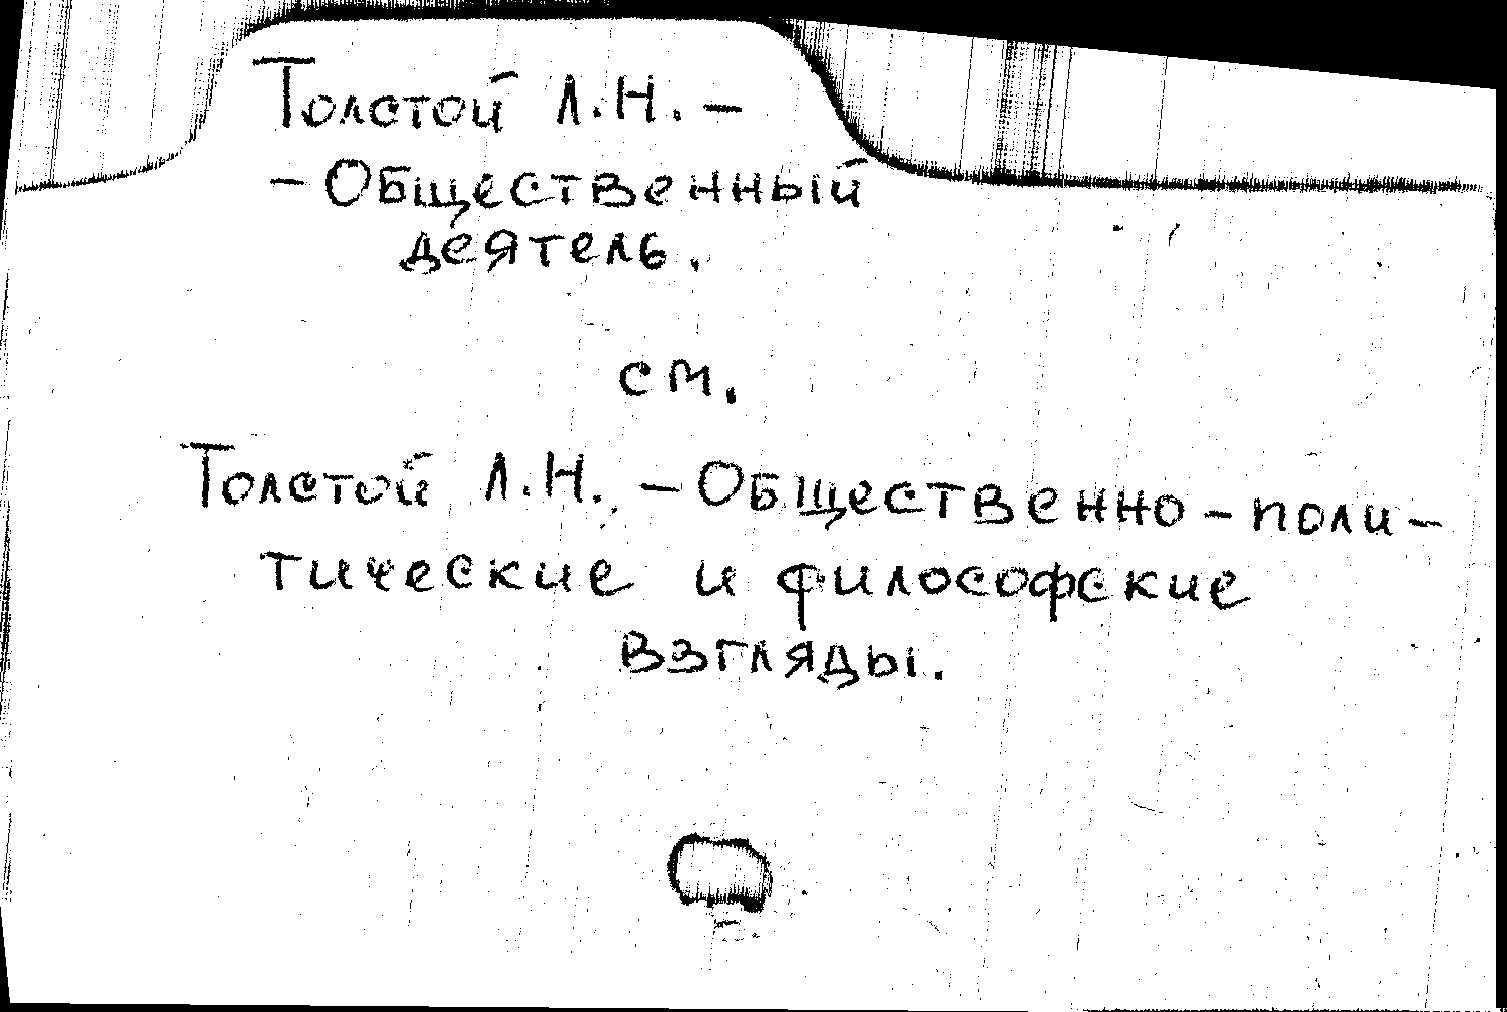 Толстой Л.Н. –
– Общественный
деятель.
см.
Толстой Л.Н. – Общественно-поли-
тические и философские
взгляды.